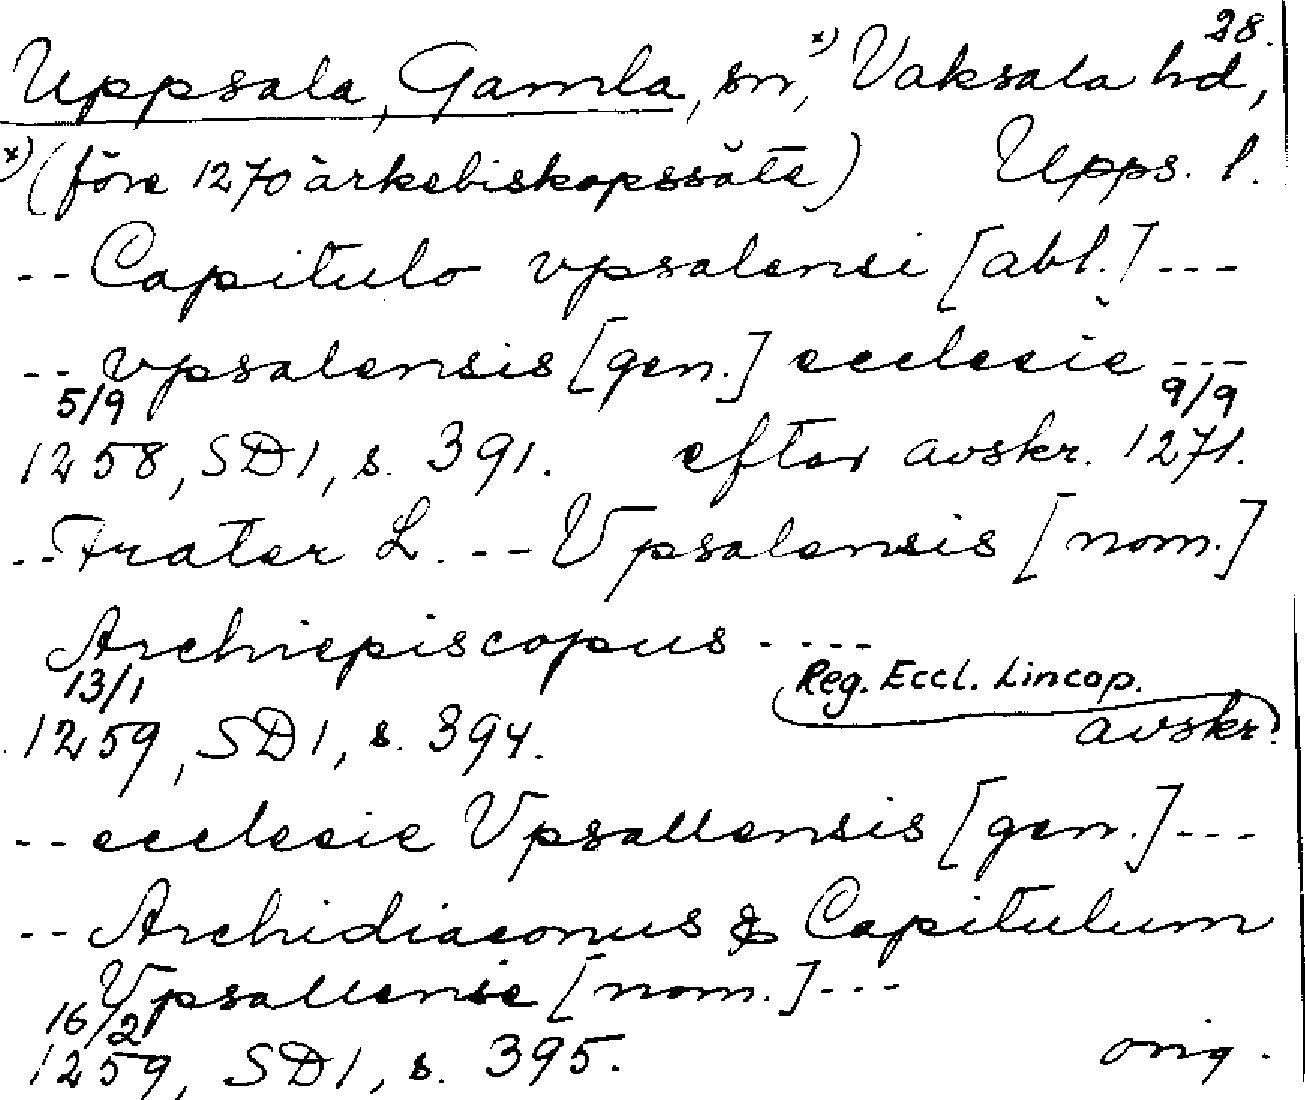 28.
Uppsala, Gamla, sn,x) Vaksala hd,
x) (före 1270 ärkebiskopssäte) Upps. l.
-- Capitulo vpsalensi [abl.] ---
-- vpsalensis [gen.] ecclesie ---
5/9 9/9
1258, SD1, s. 391. efter avskr. 1271.
-- Frater L. -- Vpsalensis [nom.]
Archiepiscopus ----
13/1 Reg. Eccl. Lincop.
1259, SD1, s. 394. avskr.
-- ecclesie Vpsallensis [gen.] ---
-- Archidiaconus & Capitulum
Vpsallense [nom.] ---
16/2
1259, SD1, s. 395. orig.